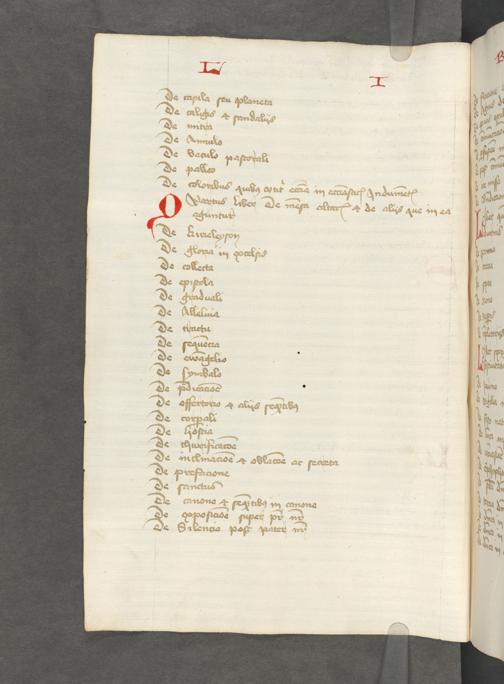 L I
De casula seu planeta
De caligis et sandalijs
De mitra
De Annulo
De baculo pastorali
De palleo
De coloribus quibus vtitur eccia in ecciasticis Indumentis
Quartus liber De missa altaris et de alijs que in ea
aguntur
De kirieleyson
De gloria in excelsis
De collecta
De epistola
De graduali
De Alleluia
De tractu
De sequencia
De ewangelio
De symbolo
De predicacioe
De offertorio et alijs sequentibus
De corporali
De hostia
De thurificacoe
De inclinacioe et oblacoe ac secreta
De prefacione
De sanctus
De canone et sequentibus in canone
De composicioe super pr nr
De Silencio post pater nr